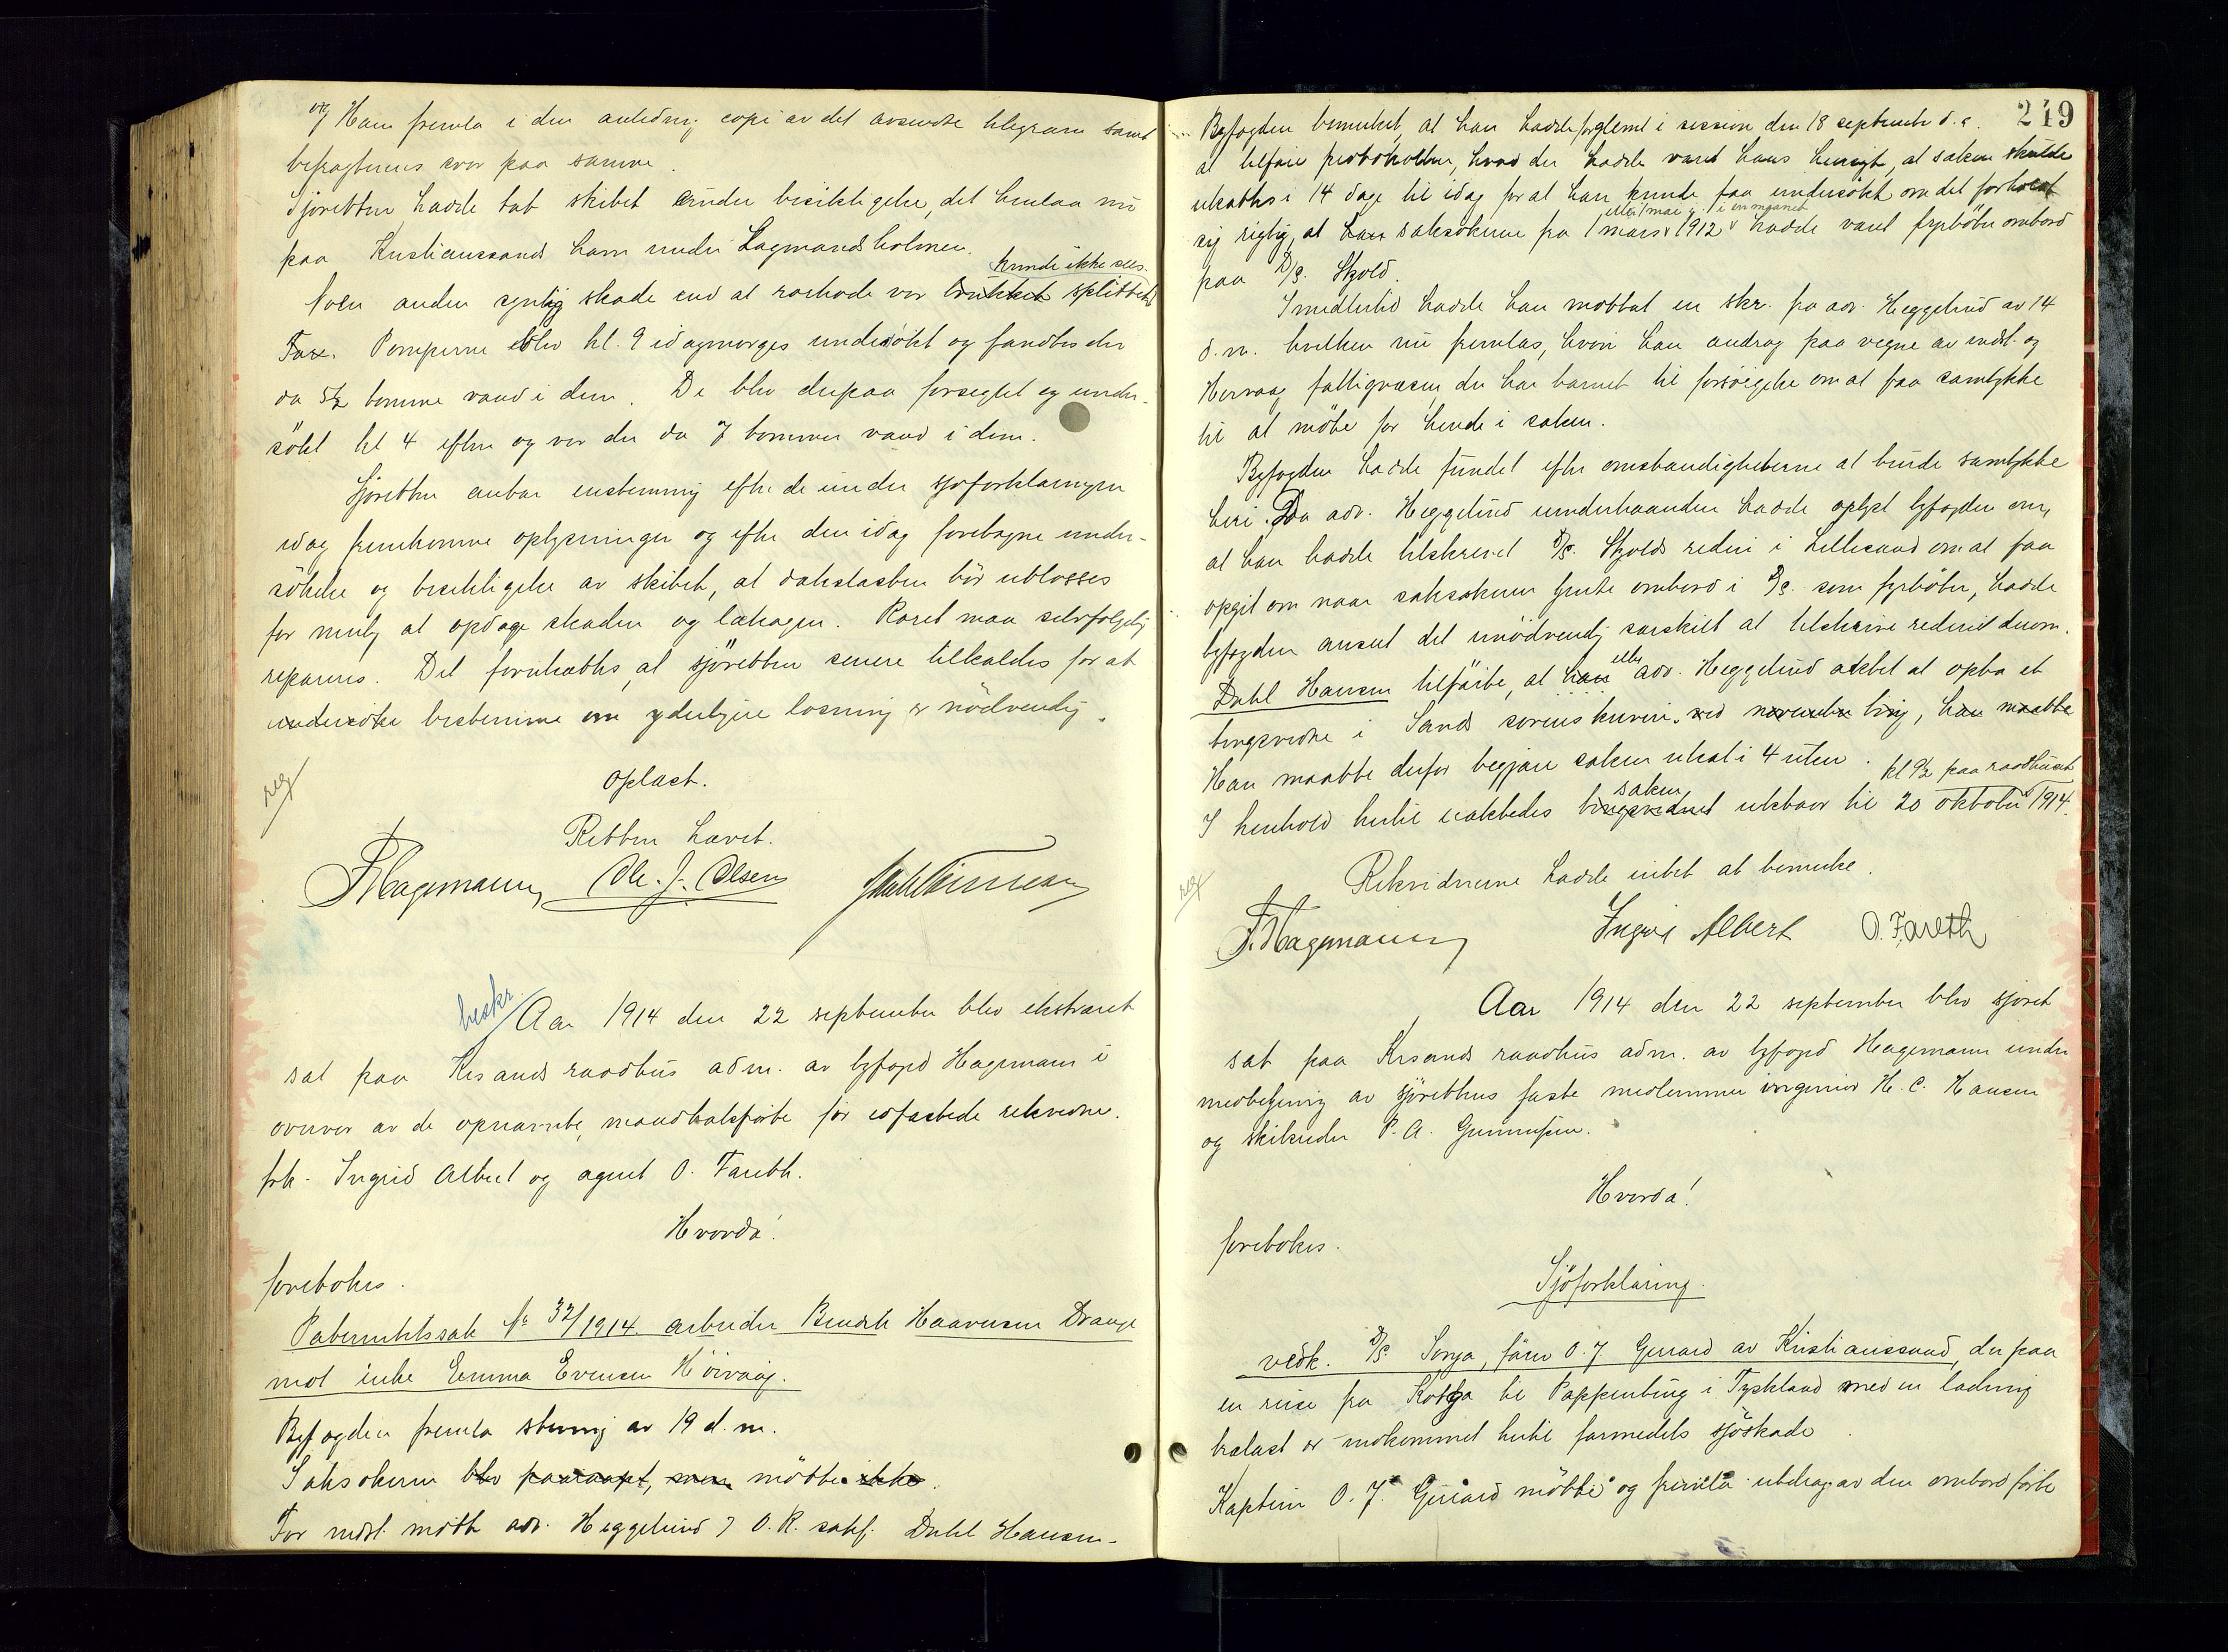 og Han fremla i den anledning copi av det avsendte telegram samt
befragternes svar paa samme.
Sjøretten hadde tat skibet under besiktigelse, det henlaa nu
paa Kristianssands havn under Lagmandsholmen.
kunde ikke sees.
Noen anden synlig skade end at rorhode var brukket splittet
Pumperne blev kl. 9 idagmorges undersökt og fandtes der
da 5½ tomme vand i dem. De blev derpaa forseglet og under-
sökt kl 4 efterm og var der da 7 tommer vand i dem.
Sjøretten antar enstemmig efter de under sjøforklaringen
idag fremkomne oplysninger og efter den idag foretagne under-
søkelse og besiktigelse av skibet, at dækslasten bör utlosses
for mulig at opdage skaden og lækagen. Roret maa selvfølgelig
repareres. Det forutsættes, at sjöretten senere tilkaldes for at
undersöke bestemme om yderligere losning er nödvendig.
Oplæst.
Retten hævet.
F. Hagemann Ole. J. Olsen
beskr.
Aar 1914 den 22 september blev ekstraret
sat paa Krsands raadhus adm. av byfogd Hagemann i
overvær av de opnævnte, mandtalsførte for edfæstede rekvidne.
frk. Ingrid Albert og agent O. Fareth.
Hvorda!
foretokes.
Paternitetssak No 32/1914. arbeider Bendik Haaversen Drange
mot enke Emma Evensen Höivaag.
Byfogden fremla stevning av 19 d.m.
Saksokeren blev paaraapt, men mötte ikke.
For indst. mötte adv. Heggelund v O.R. sakf. Dahl Hansen.
249
Byfogden bemerket, at han hadde forglemt i session den 18 september d.a.
at tilføie protokollen, hvad der hadde været hans hensigt, at saken skulde
utsættes i 14 dage til idag for at han kunde faa undersökt om det forholdt
eller 1 mai i en maaned
sig rigtig, at han saksökeren fra 1 mars 1912 hadde været fyrböter ombord
paa D/S. Skjold.
Imidlertid hadde han mottat en skr. fra adv. Heggelund av 14
d.m. hvilken nu fremlas, hvori han androg paa vegne av indst. og
Hervaag fattigvæsen, der har barnet til forsörgelse om at faa samtykke
til at möte for hende i saken.
Byfogden hadde fundet efter omstændigheterne at burde samtykke
heri. Da adv. Heggelund underhaanden hadde oplyst byfogden om,
at han hadde tilskrevet D/S. Skjolds rederi i Lillesand om at faa
opgit om naar saksøkeren ombord i D/S. som fyrböter, hadde
byfogden anset det unödvendig særskilt at tilskrive rederiet derom.
eller
Dahl Hansen tilfőiet, at han adv. Heggelund aktet at opta et
tingsvidne i Sands sorenskriveri ved november ting, han maatte
Han maatte derfor begjære saken utsat i 4 uker. kl 9½ paa raadhuset
saken
I henhold hertil utsattes tingsvidnet utstaar til 20 oktober 1914.
Rekvidnerne hadde intet at bemerke.
F. Hagemann Ingrid Albert O. Fareth
Aar 1914 den 22 september blev sjøret
sat paa Krsands raadhus adm. av byfogd Hagemann under
medbetjening av sjörettens faste medlemmer ingeniør H. C. Hansen
og skibsreder P. A.
Hvorda!
foretokes.
Sjöforklaring.
vedk. D/S. Sonja, förer O. J. av Kristianssand, der paa
en reise fra Kotka til Pappenburg i Tyskland med en ladning
trælast er indkommet hertil formedels sjöskade.
Kaptein O. J. mötte og fremla utdrag av den ombord förte